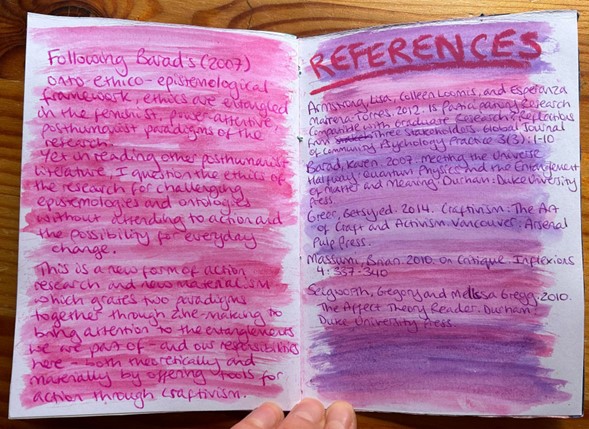 Following Barad's (2007)
onto-ethico-epistemological
framework, ethics are entangled
in the feminist, power-attentive,
posthumanist paradigms of the
research.
Yet in reading other posthumanist
literature, I question the ethics of
the research for challenging
epistemologies and ontologies
without attending to action and
the possibility for everyday
change.
This is a new form of action
research and new materialism
which grates two paradigms
together through zine-making to
bring attention to the entanglements
we are part of - and our responsibilities
here - both theoretically and
materially by offering tools for
action through craftivism.
REFERENCES
Armstrong, Lisa, Colleen Loomis, and Esperanza
Mairena-Torres. 2012. Is Participatory Research
Compatible with Graduate Research? Reflections
from Three Stakeholders. Global Journal
of Community Psychology Practice 3(3): 1-10
Barad, Karen. 2007. Meeting the Universe
Halfway: Quantum Physics and the Entanglement
of Matter and Meaning. Durham: Duke University
Press.
Greer, Betsy, ed. 2014. Craftivism: The Art
of Craft and Activism. Vancouver: Arsenal
Pulp Press.
Massumi, Brian. 2010. On Critique. Inflexions
4: 337-340
Seigworth, Gregory and Melissa Gregg. 2010.
The Affect Theory Reader. Durham:
Duke University Press.